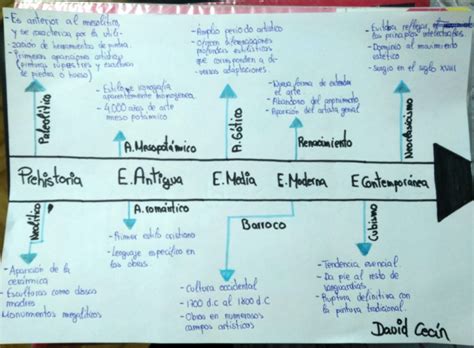 - Es anterior al mesolítico,
y se caracteriza por la utili-
zación de herramientas de piedra.
- Primeras apariciones artísticas
(pinturas rupestres y esculturas
de piedra o hueso)
Paleolítico
- Estilo e iconografía
aparentemente homogénea.
- 4.000 años de arte
mesopotámico
A. Mesopotámico
- Amplio periodo artístico
- Origen de formaciones
profundas estilísticas
que corresponden a di-
versas adaptaciones
A. Gótico
- Nueva forma de entender
el arte
- Abandono del anonimato
- Aparición del artista genial
Renacimiento
- Quiso reflejar
los principios intelectuales
- Dominio al movimiento
estético
- Surgió en el siglo XVIII
Neoclasicismo
Prehistoria
E. Antigua
E. Media
E. Moderna
E. Contemporánea
Neolítico
- Aparición de la
cerámica
- Esculturas como diosas
madres
- Monumentos megalíticos
A. romántico
- Primer estilo cristiano
- Lenguaje específico en
las obras
Barroco
- Cultura occidental
- 1700 d.C al 1800 d.C
- Obras en numerosos
campos artísticos
Cubismo
- Tendencia esencial.
- Da pie al resto de
vanguardias.
- Ruptura definitiva con
la pintura tradicional.
David Cocín